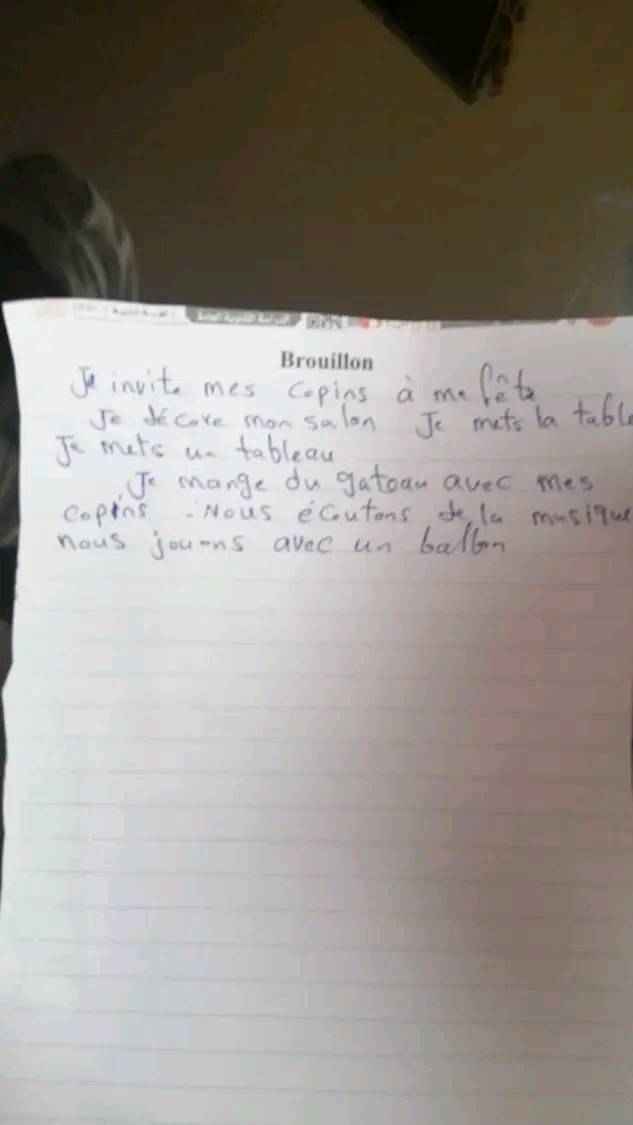 Brouillon
Je invite mes copins à ma fête
Je décore mon salon Je mets la table
Je mets un tableau
Je mange du gateau avec mes
copins - Nous écoutons de la musique
nous jouons avec un ballon